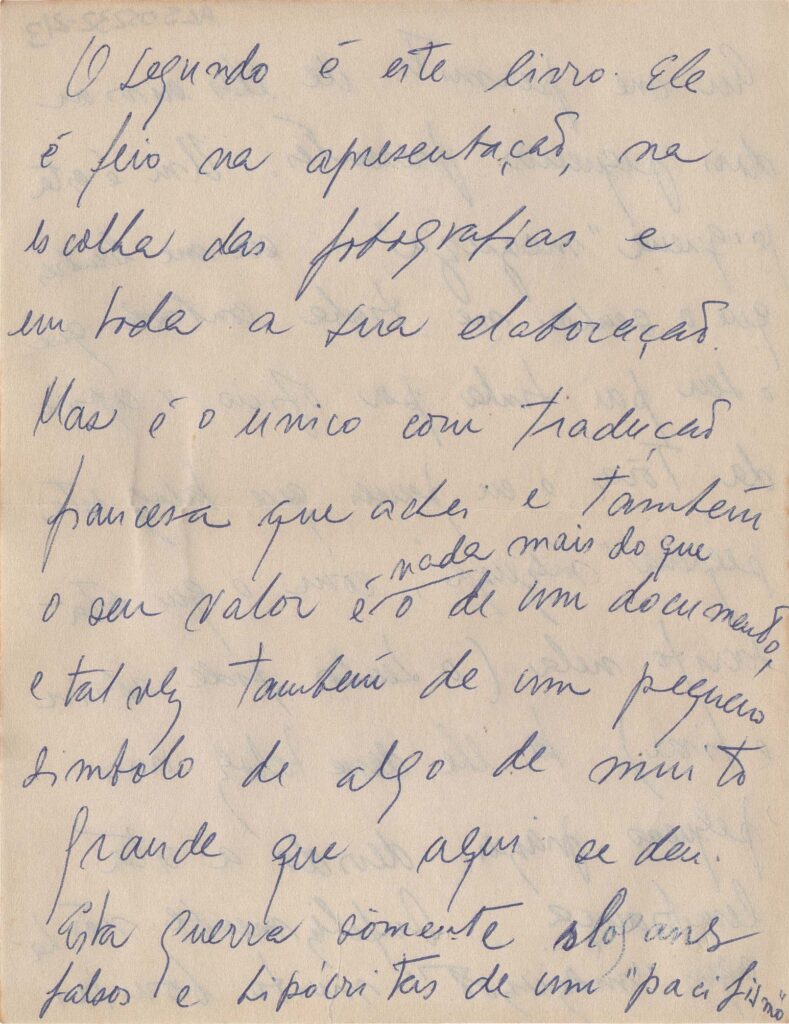 O segundo é este livro. Ele
é feio na apresentação, na
escolha das fotografias e
em toda a sua elaboração.
Mas é o unico com tradução
francesa que achei e também
o seu valor é nada mais do que
o de um documento,
e talvez também de um pequeno
simbolo de algo de muito
grande que aqui se deu.
Esta guerra sòmente slogans
falsos e hipócritas de um "pacifismo"